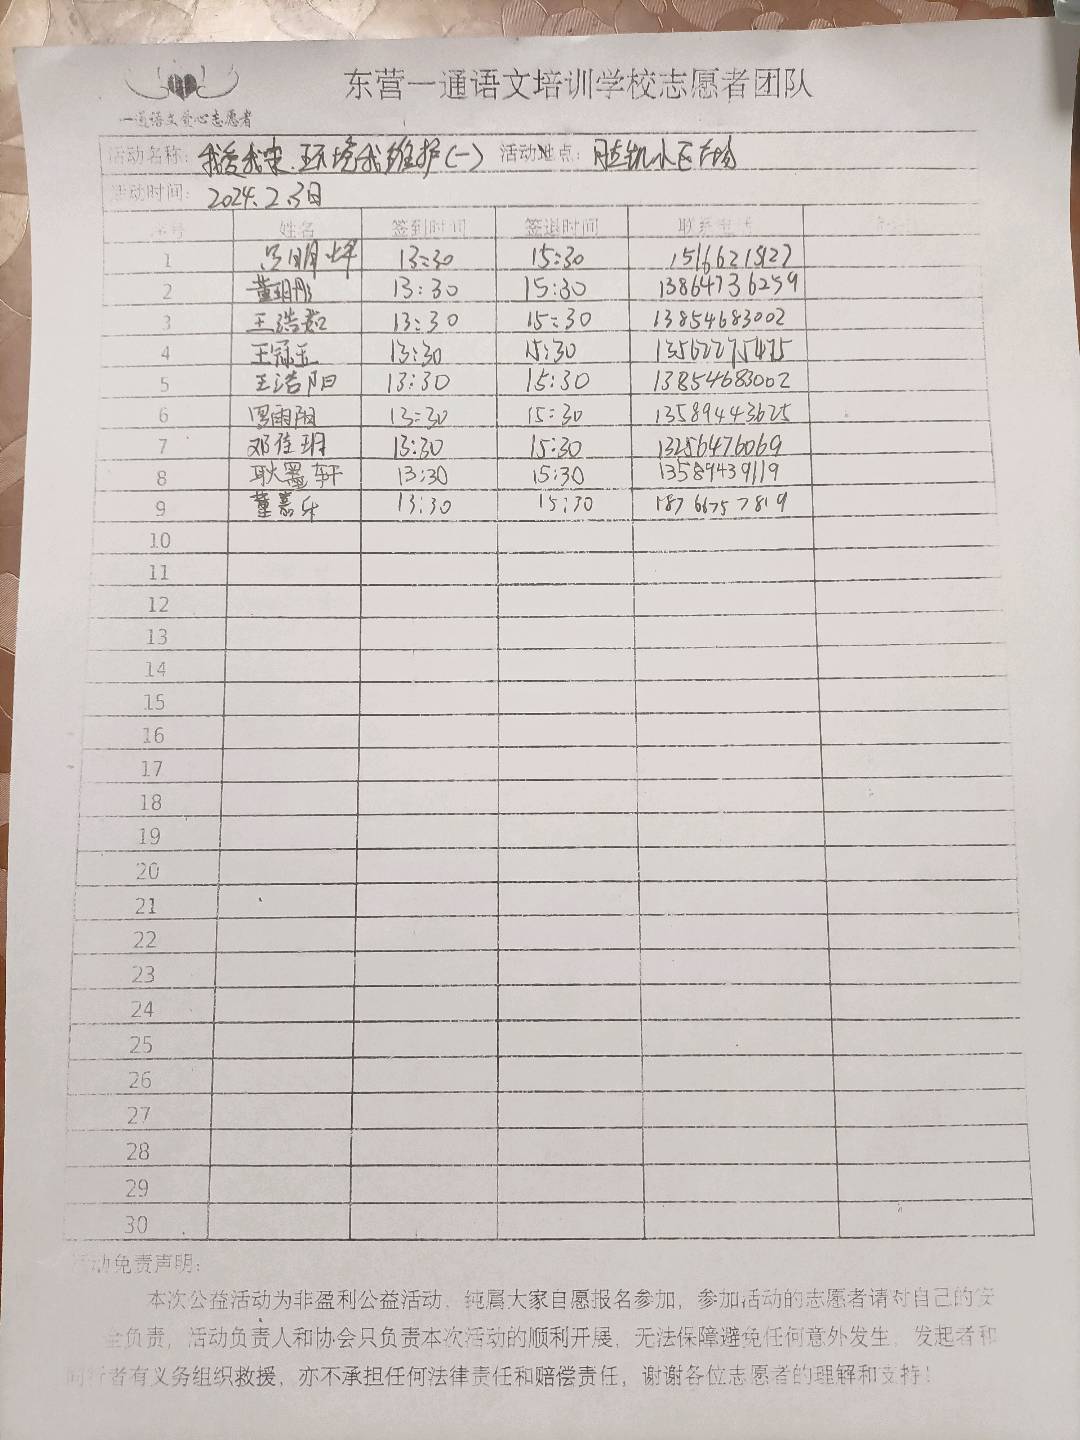 东营一通语文培训学校志愿者团队
一通语文爱心志愿者
活动名称: 我爱我家.环境我维护(一) 活动地点: 小区广场
活动时间: 2024.2.3日
序号 姓名 签到时间 签退时间 联系电话
1 13:30 15:30 15166215127
2 董玥彤 13:30 15:30 13864736259
3 王浩懿 13:30 15:30 13854683002
4 王冠玉 13:30 15:30 13562275475
5 王浩阳 13:30 15:30 13854683002
6 罗雨阳 13:30 15:30 13589443625
7 邓佳玥 13:30 15:30 13256476069
8 耿墨轩 13:30 15:30 13589439119
9 董嘉乐 13:30 15:30 18766757819
10
11
12
13
14
15
16
17
18
19
20
21
22
23
24
25
26
27
28
29
30
活动免责声明:
本次公益活动为非盈利公益活动，纯属大家自愿报名参加，参加活动的志愿者请对自己的安
全负责，活动负责人和协会只负责本次活动的顺利开展，无法保障避免任何意外发生，发起者和
同行者有义务组织救援，亦不承担任何法律责任和赔偿责任，谢谢各位志愿者的理解和支持！